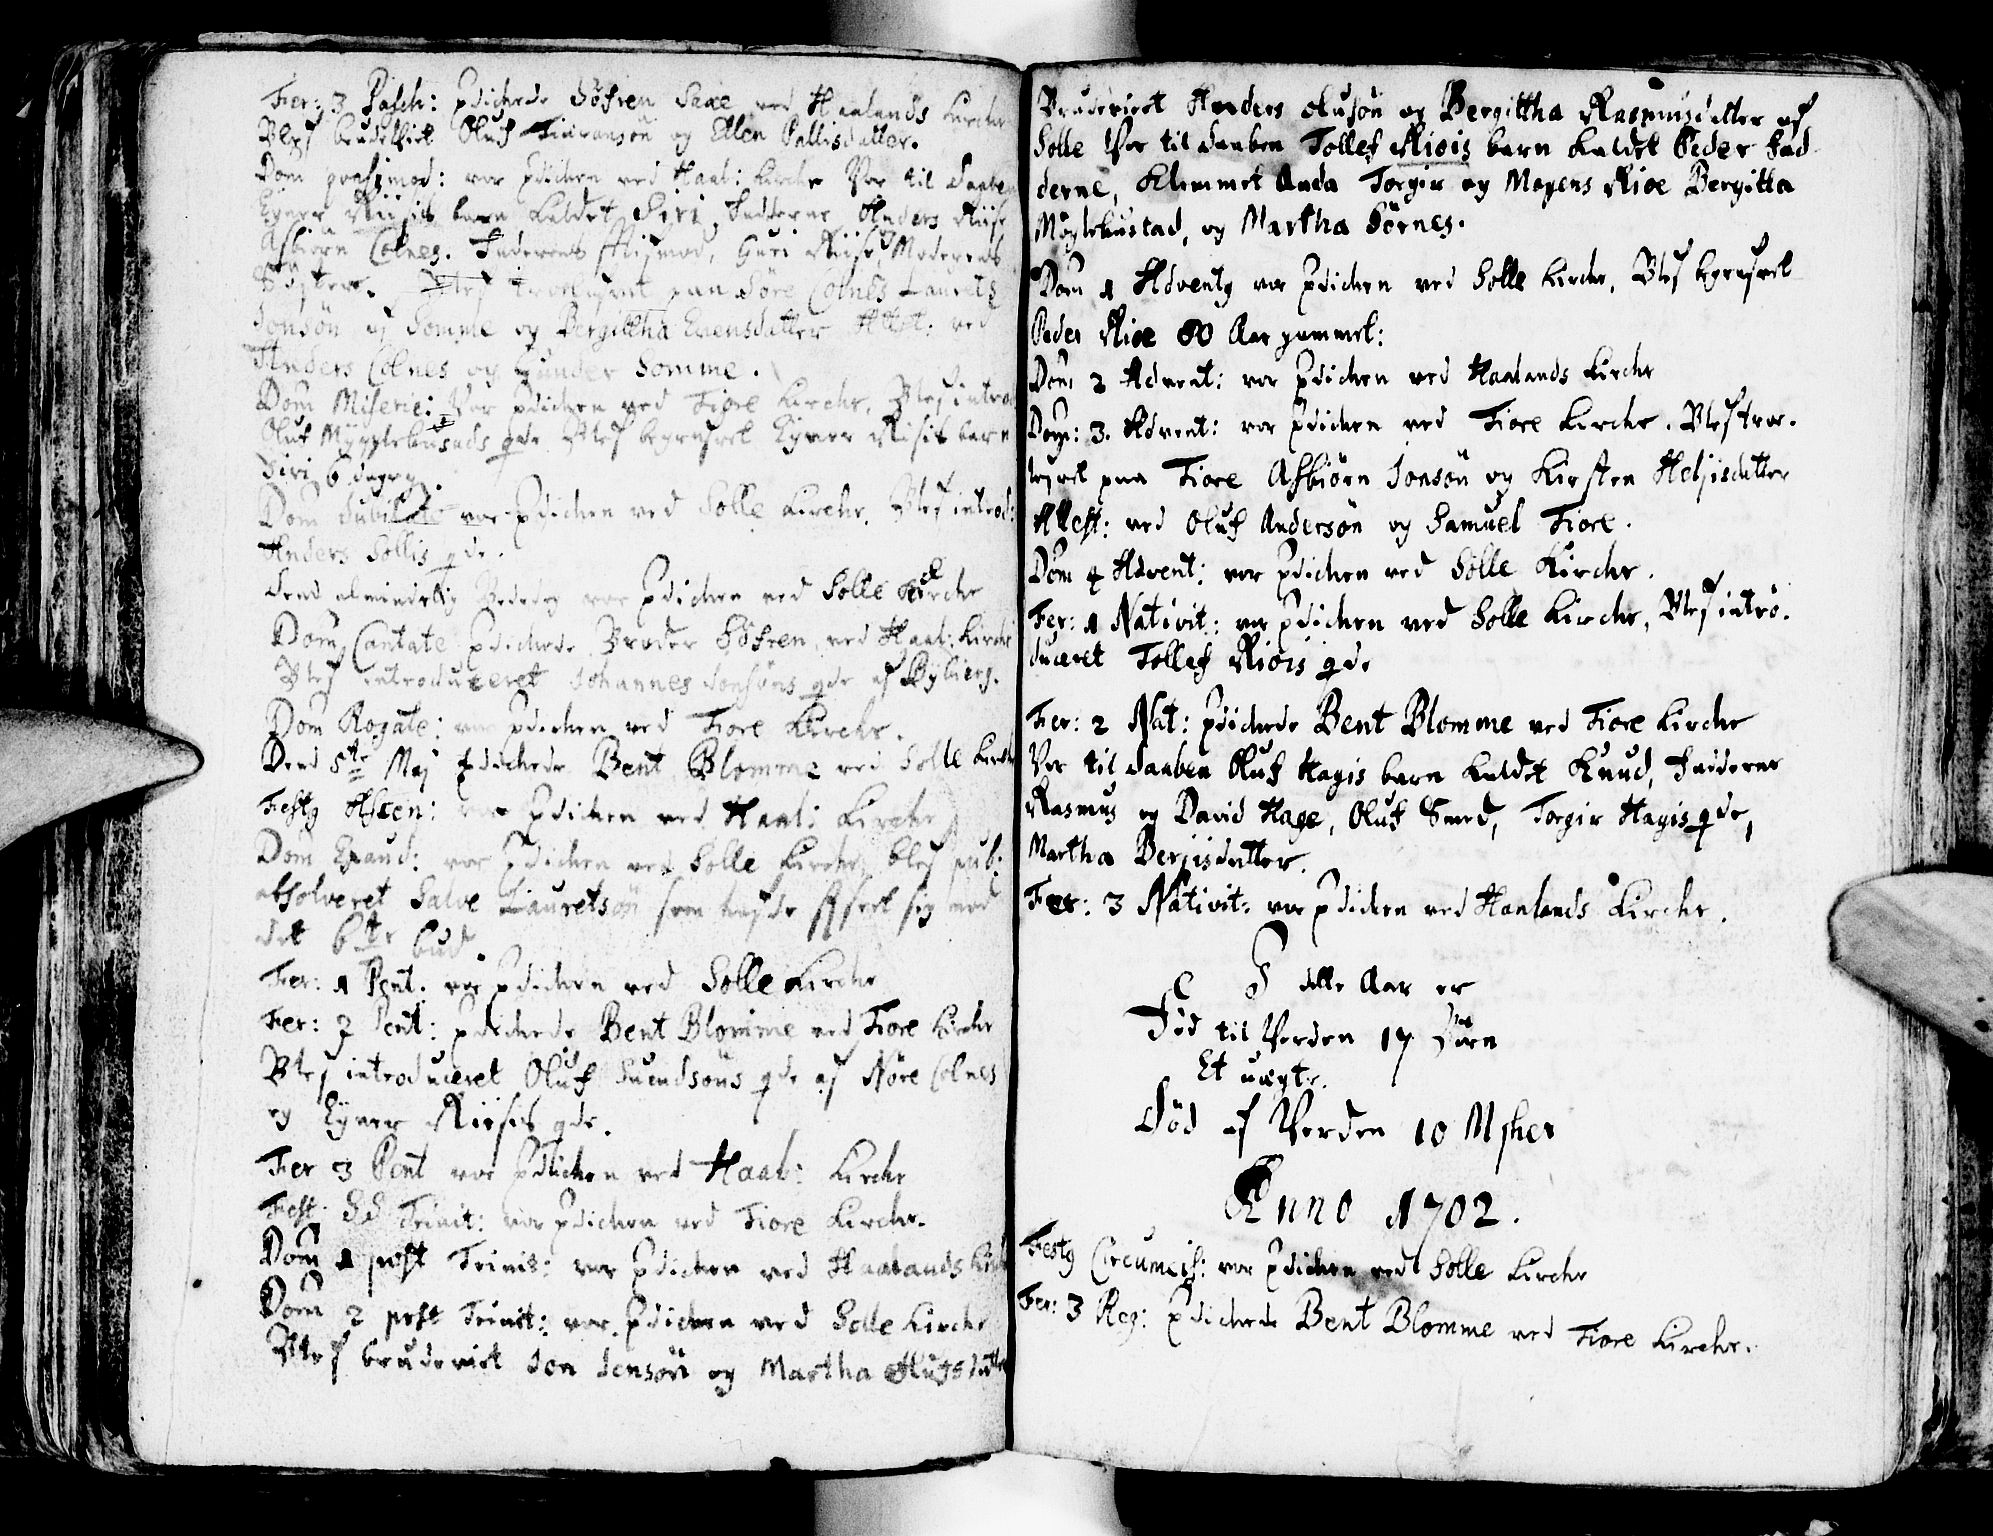 Fer: 3 Pasch: Prædickede Söfren Saxe ved Haalands Kircke
Blef brudeviet Oluf Finransön og Ellen Pallisdatter.
Dom qvasimod: var Prædicken ved Haal: Kircke Var til Daaben
Eyner Riisis barn kaldet Siri, Fadderne Anders Riise
Asbiörn Colnes. Guri Riise, Moderens
Söster. Blef trolofvet paa Söre Colnes Laurits
Jonsön af Somme og Bergittha Evensdatter Attest: ved
Anders Colnes og Gunder Somme.
Dom Miseric: Var Prædicken ved Fiore Kircke, Blef introd
Oluf Mygglebustads qde Blef begrafvet Eyner Riisis barn
Siri 6 dager
Dom Jubilate var Prædicken ved Solle Kircke. Blef introd:
Anders Sollis qde.
Dend almindelig Bededag var Prædicken ved Solle Kircke
Dom Cantate Prædickede Broder Söfren ved Haal: Kircke
Blef introduceret Johannes Jonsöns qde af
Dom Rogate: var Prædicken ved Fiore Kircke.
Dend 5te Maj Prædickede Bent Blomme ved Solle Kircke
Festg Ascen: var Prædicken ved Haal: Kircke
Dom Exaud: var Prædicken ved Solle Kircke, blef pub:
absolveret Salve Lauretsön som hafde forseet sig mod
det 6te bud.
Fer: 1 Pent. var Prædicken ved Solle Kircke
Fer: 2 Pent: Prædickede Bent Blomme ved Fiore Kircke
Blef introduceret Oluf Suendsöns qde af Nöre Colnes
og Eyner Riisis qde.
Fer 3 Pent var Prædicken ved Haal: Kircke
Fest: SS Trinit: var Prædicken ved Fiore Kircke.
Dom 1 post Trinit: var Prædicken ved Haalands Kirck
Dom 2 post Trinit: var Prædicken ved Solle Kircke
Blef brudeviet Jon Jensön og Martha Olufsdatter
Brudeviet Anders Olusön og Bergittha Rasmusdatter af
Solle Var til Daaben Tollef Riois barn kaldet Peder Fad
derne, Klemmet Anda Torgir og Mogens Rioe Bergitta
Möglebustad, og Martha Sörnes.
Dom 1 Adventg var Prædicken ved Solle Kircke, Blef begrafvet
Peder Rioe 80 Aar gammel:
Dom 2 Advent: var Prædicken ved Haalands Kircke
Dom: 3. Advent: var Prædicken ved Fiore Kircke. Blef troe.
lofvet paa Fiore Asbiörn Jonsön og Kirsten Heljisdatter
Attest: ved Oluf Andersön og Samuel Fiore.
Dom 4 Advent: var Prædicken ved Solle Kircke.
Fer: 1 Nativit: var Prædicken ved Solle Kircke, Blef intro.
duceret Tollef Riois qde
Fer: 2 Nat: Prædickede Bent Blomme ved Fiore Kircke
Var til Daaben Oluf Hagis barn kaldet Knud, Fadderne
Rasmus og David Hage, Oluf Smed, Torgir Hagis qde,
Martha Berjisdatter.
Fer: 3 Nativit: var Prædicken ved Haalands Kircke.
I dette Aar er
Föd til Verden 17 Börn
Et uægte.
Död af Verden 10 Msker
Anno 1702.
Festg Circumcis: var Prædicken ved Solle Kircke
Fer: 3 Reg: Prædickede Bent Blomme ved Fiore Kircke.